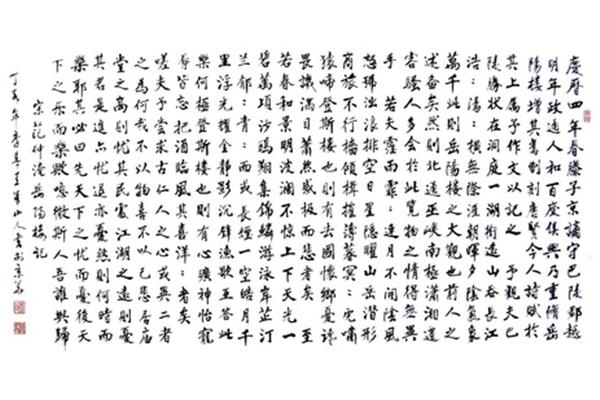 慶曆四年春滕子京謫守巴陵郡越
明年政通人和百廢俱興乃重脩岳
陽樓增其舊制刻唐賢今人詩賦於
其上屬予作文以記之 予觀夫巴
陵勝狀在洞庭一湖銜遠山吞長江
浩﹕湯﹕橫無際涯朝暉夕陰氣象
萬千此則岳陽樓之大觀也前人之
述备矣然則北通巫峽南極瀟湘遷
客騷人多會於此覽物之情得無異
乎 若夫霪雨霏﹕連月不開陰風
怒號濁浪排空日星隱曜山岳潛形
商旅不行檣傾楫摧薄暮冥﹕虎嘯
猿啼登斯樓也則有去國懷鄉憂讒
畏譏滿目蕭然感極而悲者矣 至
若春和景明波瀾不驚上下天光一
碧萬頃沙鷗翔集錦鱗游泳岸芷汀
蘭郁﹕青﹕而或長煙一空皓月千
里浮光耀金靜影沉璧漁歌互答此
樂何極登斯樓也則有心曠神怡寵
辱皆忘把酒臨風其喜洋﹕者矣
嗟夫予嘗求古仁人之心或異二者
之為何哉不以物喜不以己悲居廟
堂之高則憂其民處江湖之遠則憂
其君是進亦憂退亦憂然則何時而
樂耶其必曰先天下之憂而憂後天
下之樂而樂歟噫微斯人吾誰與歸
宋范仲淹岳陽樓記
丁亥年季夏 山人書於京華